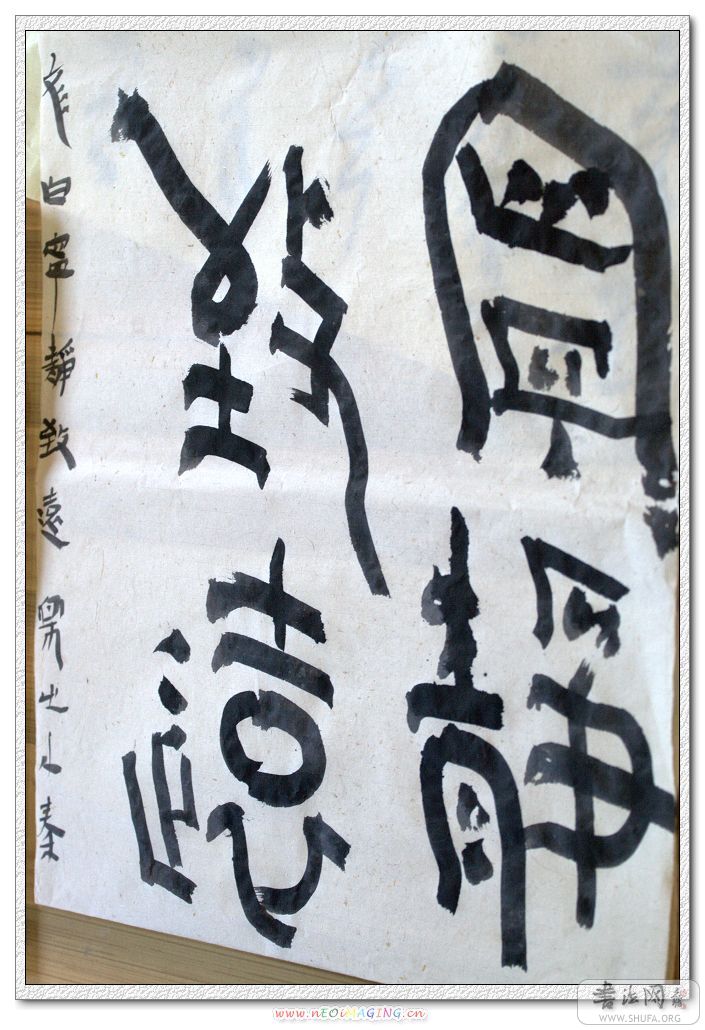 寧靜
致遠
曰寧靜致遠
书法网
WWW.SHUFA.ORG
www.nEOiMAGiNG.cn